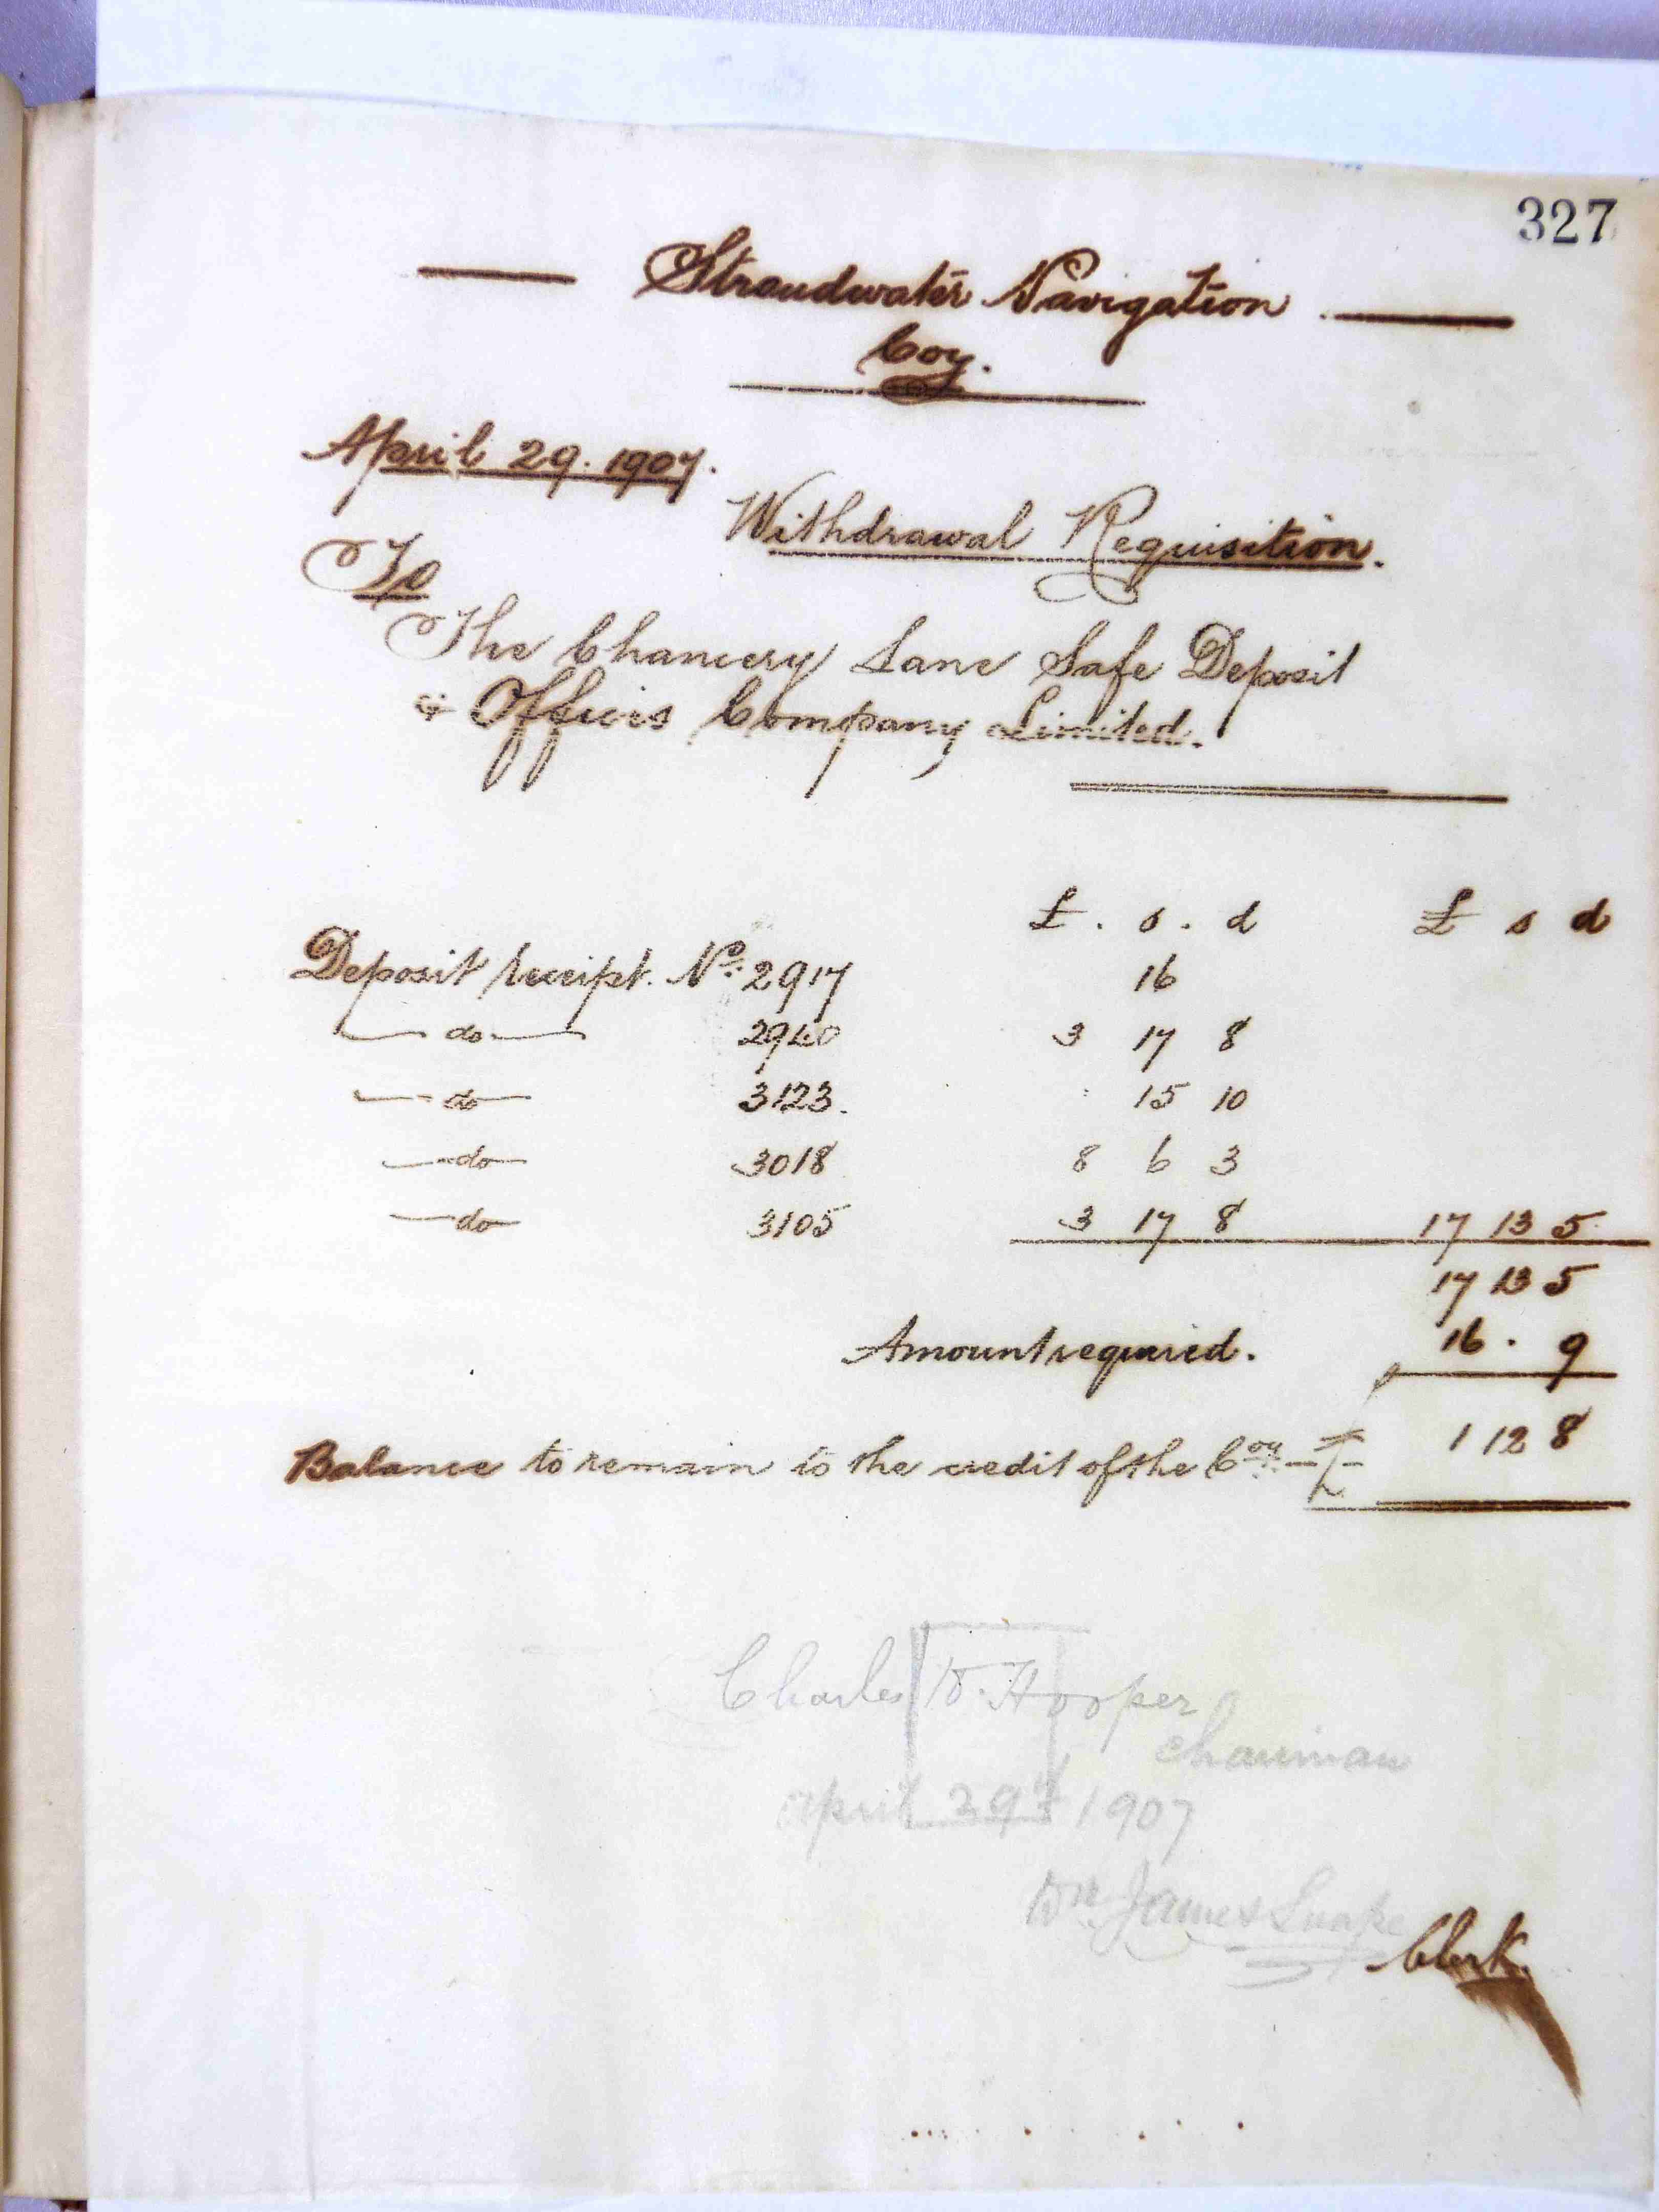 327
Stroudwater Navigation
Coy.
April 29. 1907.
Withdrawal Requisition.
To
The Chancery Lane Safe Deposit
& Offices Company Limited.
£ . s . d £ s d
Deposit receipt. No. 2917 16
do 2940 3 17 8
do 3123. 15 10
do 3018 8 6 3
do 3105 3 17 8 17 13 5
17 13 5
Amount required. 16 . 9
Balance to remain to the credit of the Coy £ 1 12 8
Charles W. Hooper
Chairman
April 29th 1907
Wm James Snape
Clerk.